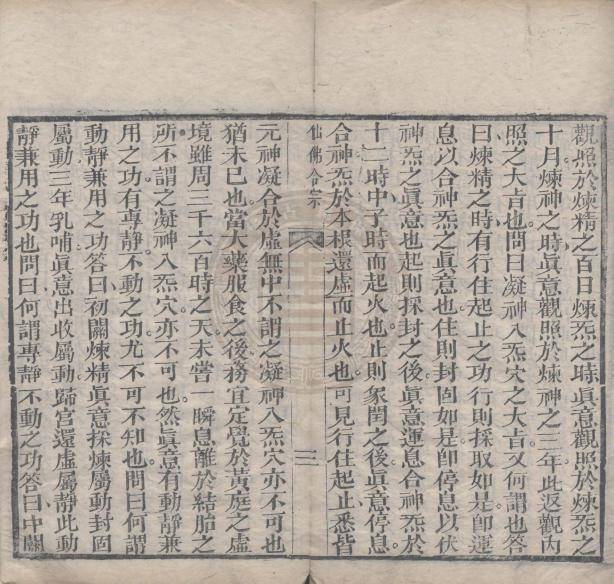 觀照於煉精之百日煉炁之時眞意觀照於煉炁之
十月煉神之時眞意觀照於煉神之三年此返觀內
照之大旨也問曰凝神入炁穴之大旨又何謂也答
曰煉精之時有行住起止之功行則採取如是卽運
息以合神炁之眞意也住則封固如是卽停息以伏
神炁之眞意也起則採封之後眞意運息合神炁於
十二時中子時而起火也止則家閏之後眞意停息
合神炁於本根還虛而止火也可見行住起止悉皆
仙佛合宗
三
元神凝合於虛無中不謂之凝神入炁穴亦不可也
猶未已也當大藥服食之後務宜定覺於黃庭之虛
境雖周三千六百時之天未嘗一瞬息離於結胎之
所不謂之凝神入炁穴亦不可也然眞意有動靜兼
用之功有專靜不動之功尤不可不知也問曰何謂
動靜兼用之功答曰初關煉精眞意採煉屬動封固
屬動三年乳哺眞意出收屬動歸宮還虛屬靜此動
靜兼用之功也問曰何謂專靜不動之功答曰中關